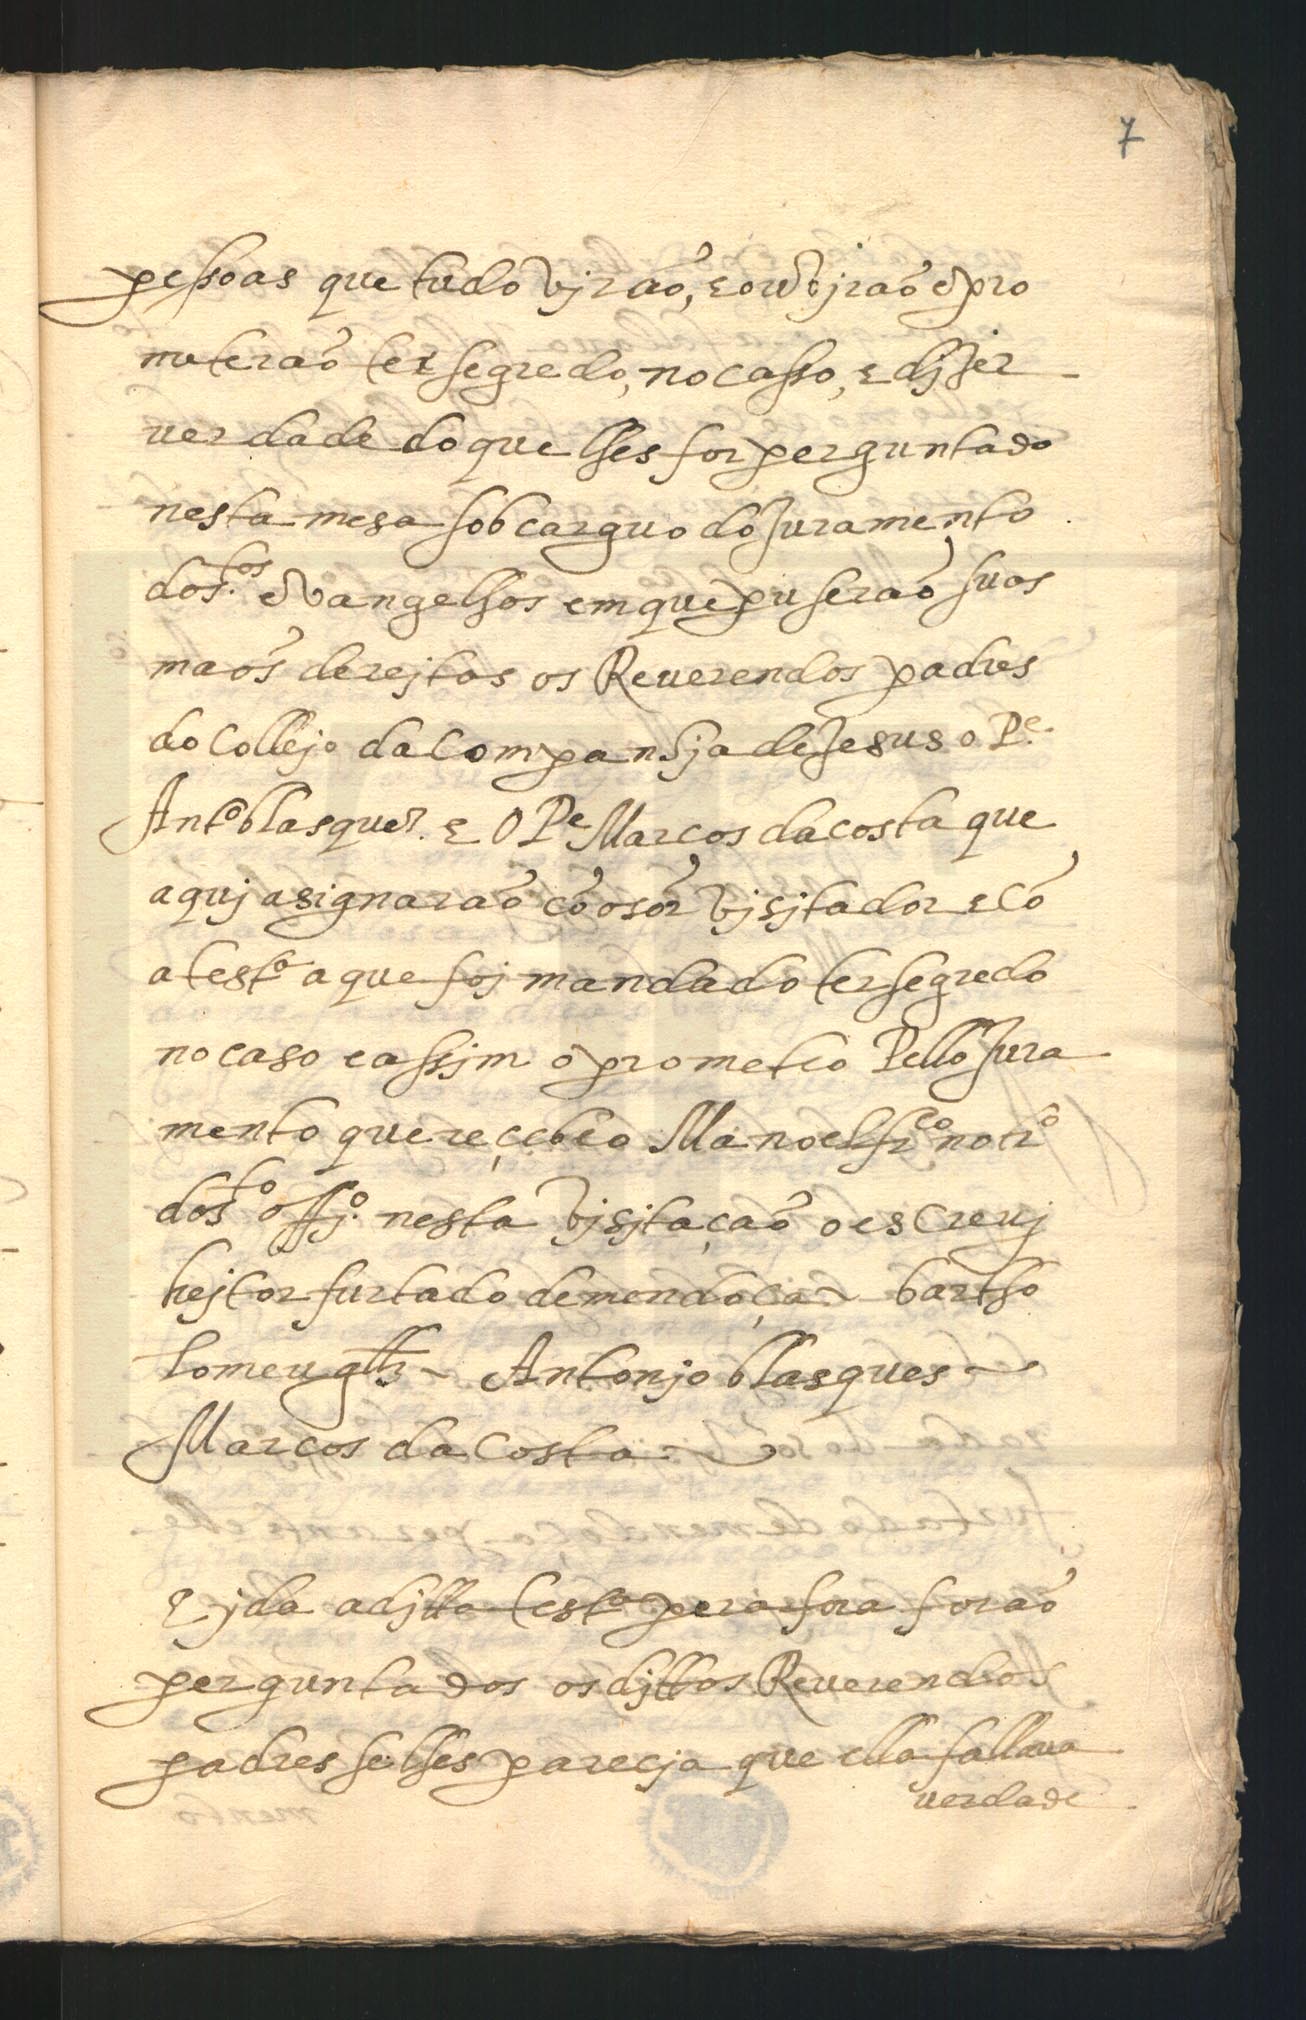 7
pessoas que tudo vjrão, e ouvjrão e pro
meterão ter segredo, no casso, e djzer
verdade do que lhes for perguntado
nesta mesa sob carguo do Juramento
dos s.tos evangelhos em que puserão suas
mãos derejtas os Reuerendos padres
do Collejo da Companhja de Jesus o P.e
Ant.o blasquez. e O P.e Marcos da costa que
aquj asignarão cõ o sõr vjsjtador e cõ
a test.a a que foj mandado ter segredo
no caso e assjm o prometeo Pello Jura
mento que reçebeo Manoel fr.co not.ro
do s.to offj.o nesta vjsjtação o escreuj
hejtor furtado de mendoça ~ bartho
lomeu glz ~ Antonjo blasques ~
Marcos da Costa ~
E jda a djtta test.a pera fora forão
perguntados os djttos Reuerendos
padres se lhes parecja que ella fallaua
uerdade